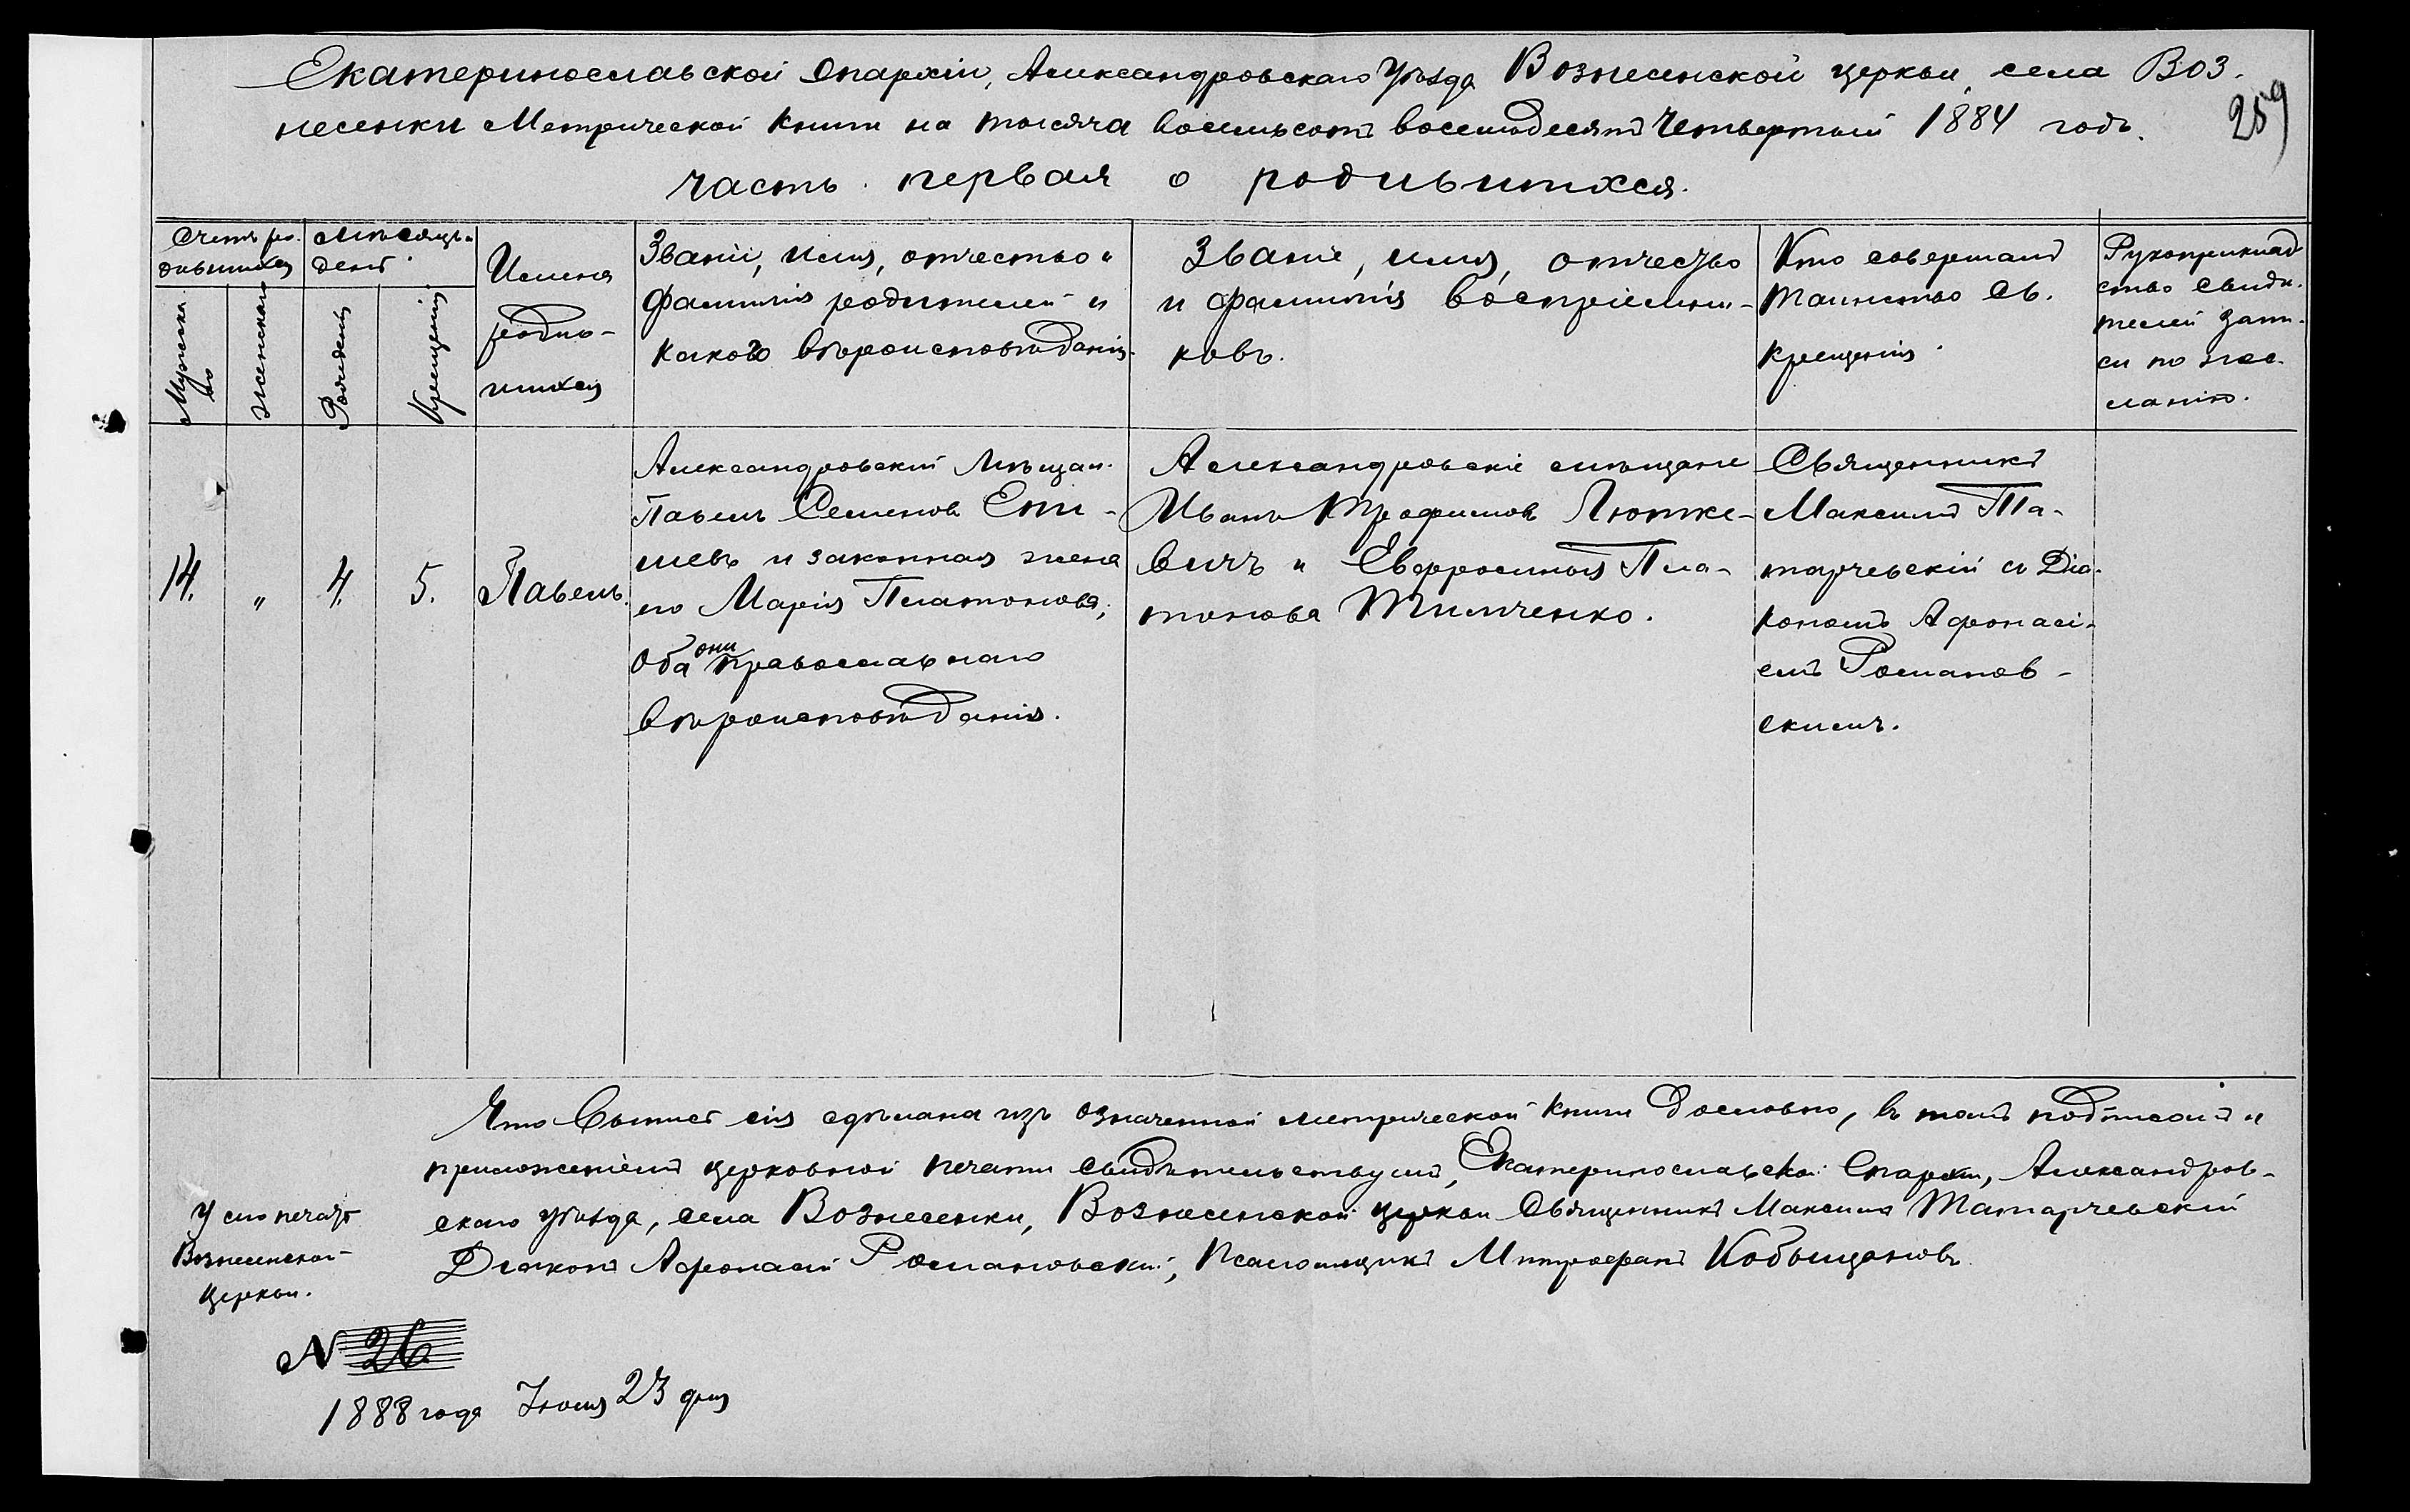 Екатеринославской Епархіи, Александровскаго Уѣзда Вознесенской церкви, села Воз-
несенки Метрической Книги на тысяча восемьсотъ восемьдесятъ Четвертый 1884 годъ.
259
часть первая о родившихся.
Счетъ ро-
дившихся
Мужеска-
го
Женскаго
Мѣсяцъ и
день
Рожденія
Крещенія
Имена
родив-
шихся
Званіе, имя, отчество и
фамилія родителей и
какого вѣроисповѣданія.
Званіе, имя, отчество
и фамилія воспріемни-
ковъ.
Кто совершалъ
таинство Св.
крещенія.
Рукоприклад
ство свидѣ-
телей запи-
си по же-
ланію.
14.
"
4.
5.
Павелъ.
Александровскій мѣщан.
Павелъ Семеновъ Епи-
шевъ и законная жена
его Марія Платонова,
оба они православнаго
вѣроисповѣданія.
Александровскіе мѣщане
Иванъ Трофимовъ Лютке-
вичъ и Евфросинія Пла-
тонова Тимченко.
Священникъ
Максимъ Та-
тарчевскій съ Діа-
кономъ Афонасі-
емъ Романов-
скимъ.
Что Выпись сія сдѣлана изъ означенной метрической книги дословно, въ томъ подписомъ и
приложеніемъ церковной печати свидѣтельствуемъ, Екатеринославской Епархіи, Александров-
скаго уѣзда, села Вознесенки, Вознесенской церкви Священникъ Максимъ Татарчевскій
Діаконъ Афонасій Романовскій, Псаломщикъ Митрофанъ Кобыщановъ.
У сего печать
Вознесенской
Церкви.
N 26
1888 года Іюля 23 дня